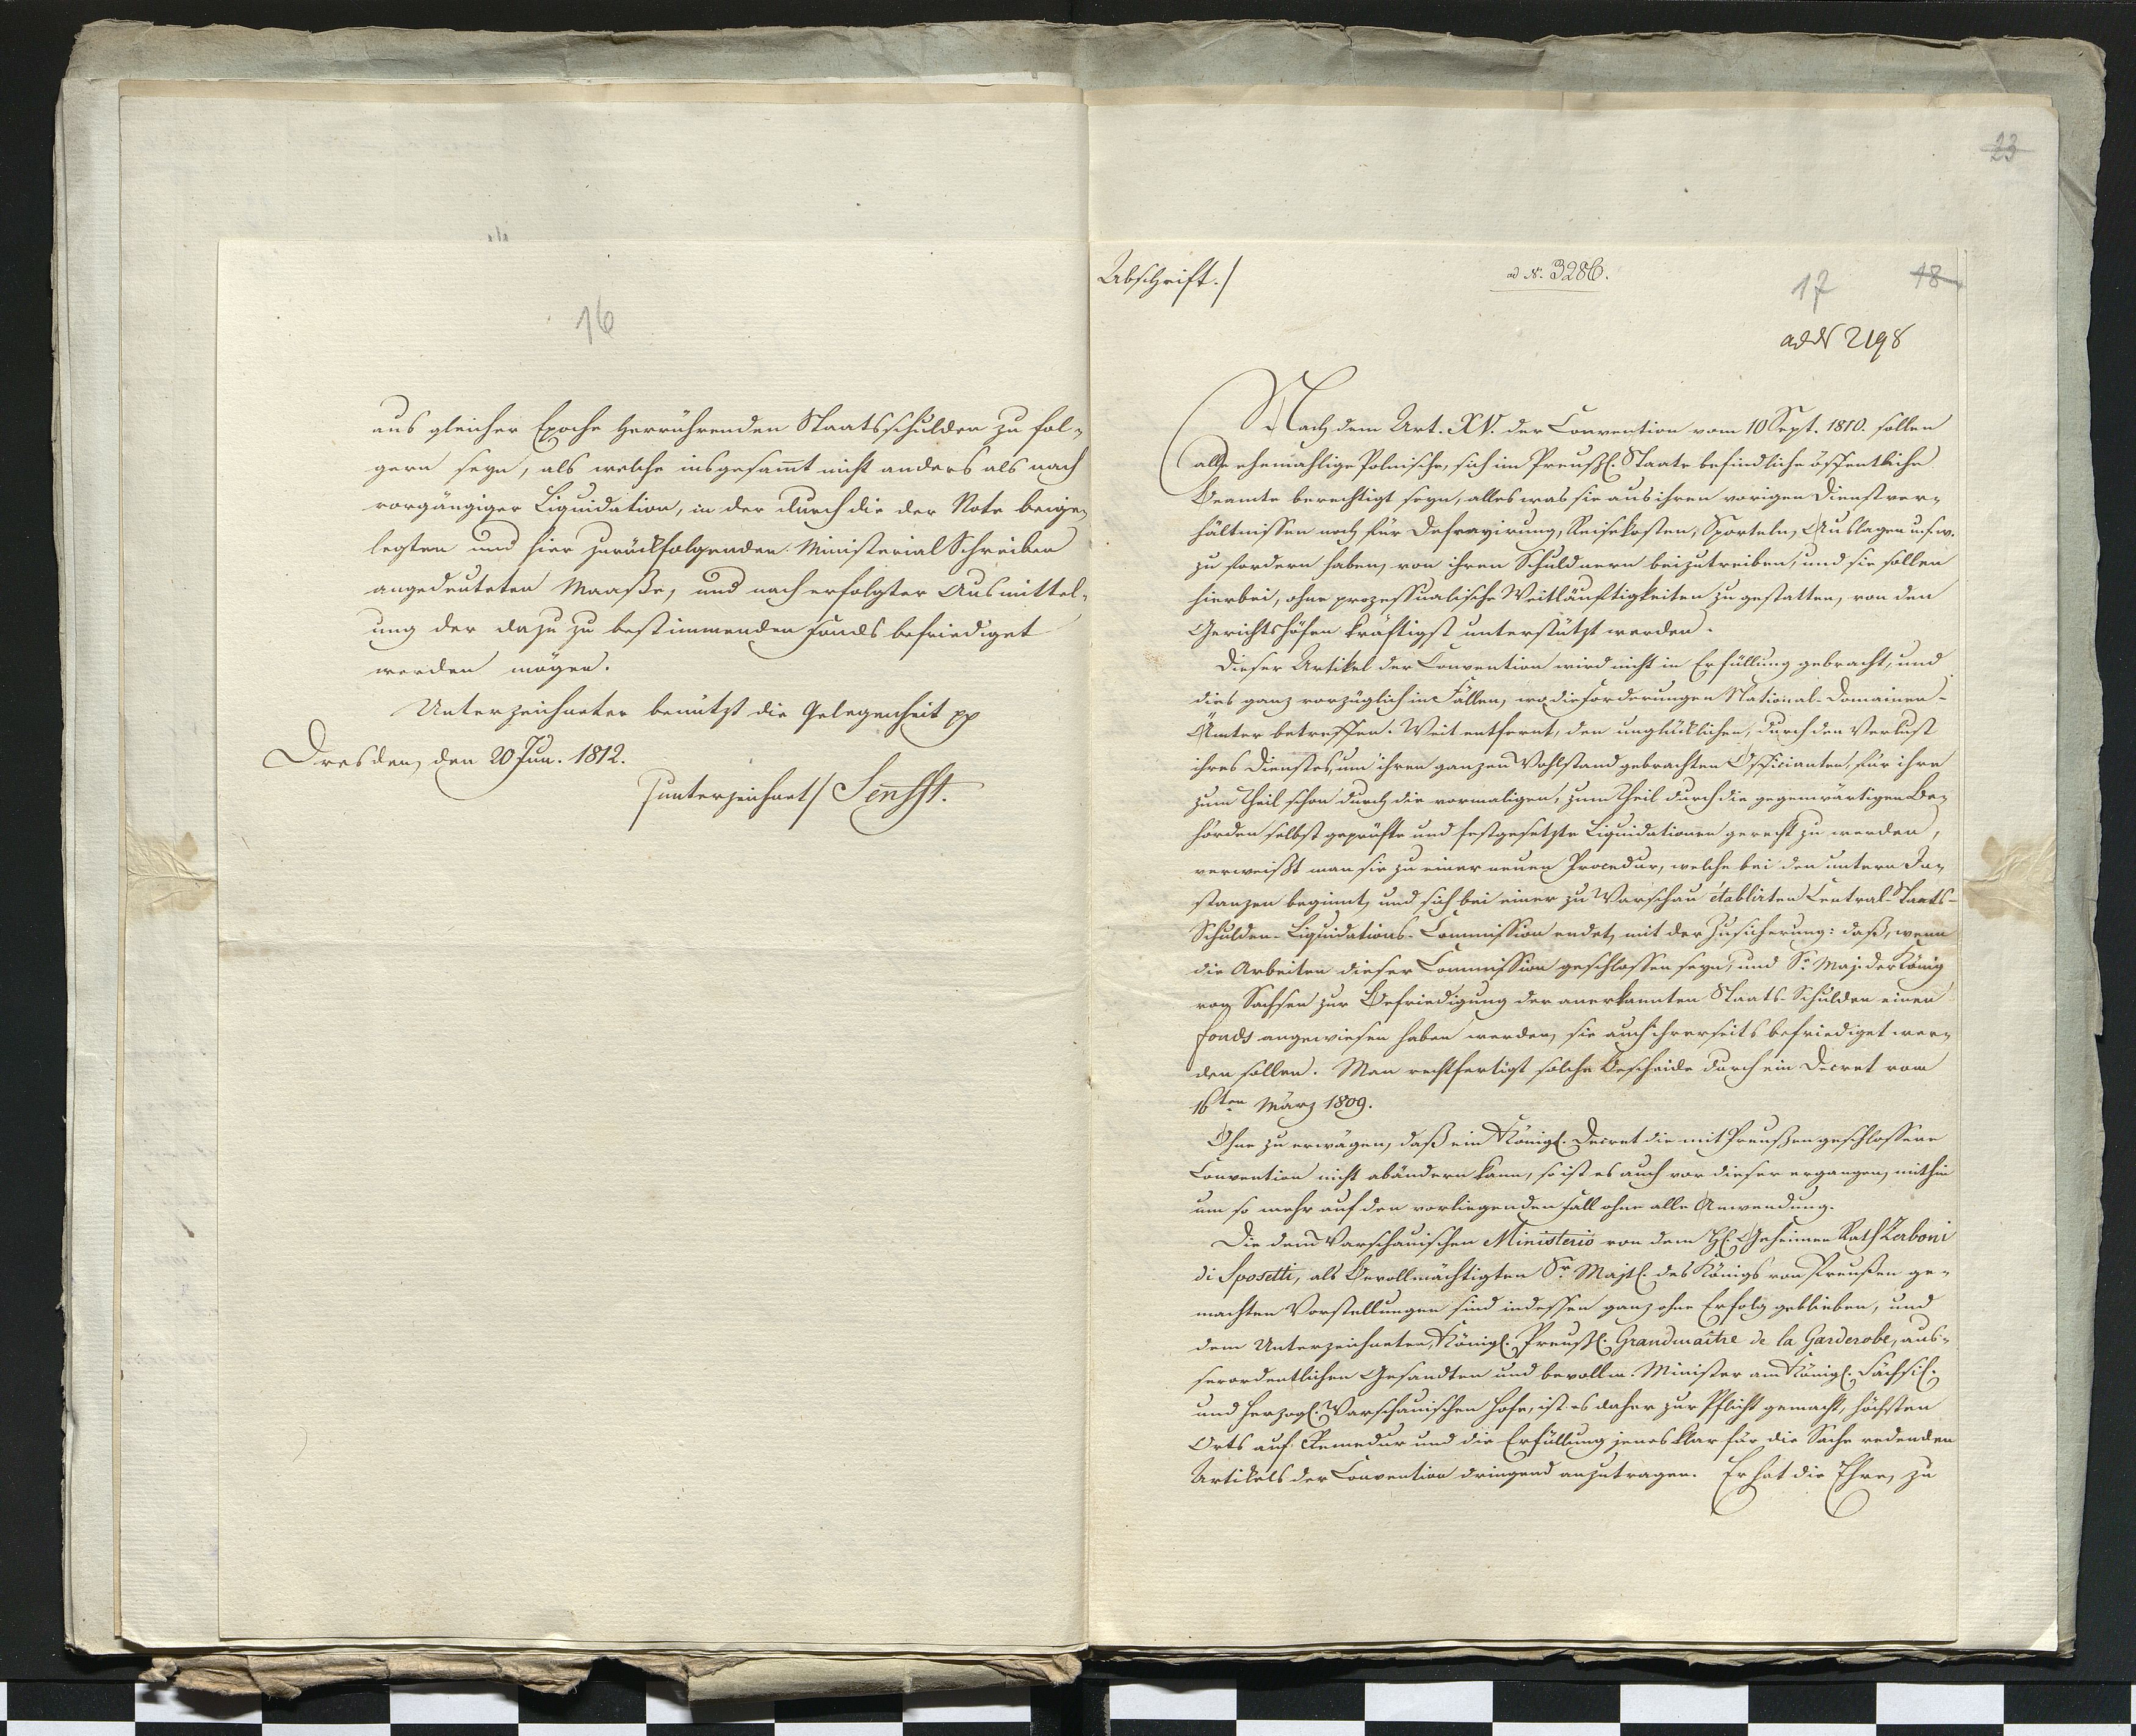 16
aus gleicher Epoche herrührenden Staatsschulden zu fol-
gern seyn, als welche insgesammt nicht anders als nach
vorgängiger Liquidation, in der durch die der Note beige-
legten und hier zurückfolgenden Ministerial Schreiben
angedeuteten Maaße, und nach erfolgter Ausmittel-
ung der dazu zu bestimmenden Fonds befriediget
werden mögen.
Unterzeichneter benutzt die Gelegenheit pp
Dresden, den 20 Jun. 1812.
/unterzeichnet/ Senfft.
23
Abschrift./
ad N. 3286.
17
18
ad N 2198
Nach dem Art. XV. der Convention vom 10 Sept. 1810. sollen
alle ehemahlige Polnische, sich im Preußl. Staate befindliche öffentliche
Beamte berechtigt seyn, alles was sie aus ihren vorigen Dienstver-
hältnissen noch für Defrayirung, Reisekosten, Sporteln, Auslagen u.s.w.
zu fordern haben, von ihren Schuldnern beizutreiben, und sie sollen
hierbei, ohne prozessualische Weitläuftigkeiten zu gestatten, von den
Gerichtshöfen kräftigst unterstützt werden.
Dieser Artikel der Convention wird nicht in Erfüllung gebracht, und
dies ganz vorzüglich in Fällen, wo die Forderungen National-Domainen-
Ämter betreffen. Weit entfernt, den unglücklichen, durch den Verlust
ihres Dienstes, um ihren ganzen Wohlstand gebrachten Officianten, für ihre
zum Theil schon durch die vormaligen, zum Theil durch die gegenwärtigen Be-
hörden selbst geprüfte und festgesetzte Liquidationen gerecht zu werden,
verweißt man sie zu einer neuen Procedur, welche bei den untern In-
stanzen beginnt, und sich bei einer zu Warschau établirten Central-Staats-
Schulden-Liquidations-Commission endet, mit der Zusicherung: daß, wenn
die Arbeiten dieser Commission geschlossen seyn, und Sr. Maj. der König
von Sachsen zur Befriedigung der anerkannten Staats-Schulden einen
Fonds angewiesen haben werden, sie auch ihrerseits befriediget wer-
den sollen. Man rechtfertigt solche Bescheide durch ein Decret vom
16ten März 1809.
Ohne zu erwägen, daß ein Königl. Decret die mit Preußen geschlossene
Convention nicht abändern kann, so ist es auch vor dieser ergangen, mithin
um so mehr auf den vorliegenden Fall ohne alle Anwendung.
Die dem Warschauischen Ministerio von dem H. Geheimen Rath Zerboni
di Sposetti, als Bevollmächtigten Sr. Majt. des Königs von Preußen ge-
machten Vorstellungen sind indessen ganz ohne Erfolg geblieben, und
dem Unterzeichneten, Königl. Preußl. Grandmaître de la Garderobe, aus-
serordentlichen Gesandten und bevollm. Minister am Königl. Sächsil.
und Herzogl. Warschauischen Hofe, ist es daher zur Pflicht gemacht, höchsten
Orts auf Remedur und die Erfüllung jenes klar für die Sache redenden
Artikels der Convention dringend anzutragen. Er hat die Ehre, zu